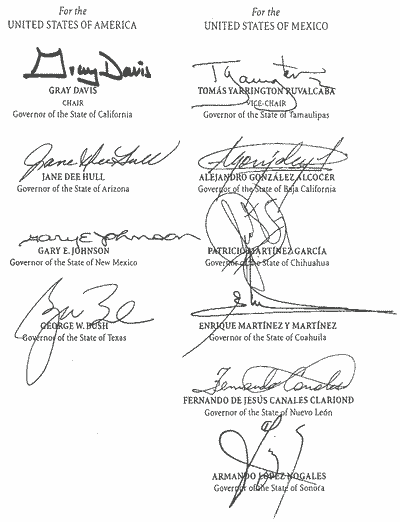 For the
UNITED STATES OF AMERICA
Gray Davis
GRAY DAVIS
CHAIR
Governor of the State of California
Jane Dee Hull
JANE DEE HULL
Governor of the State of Arizona
Gary E Johnson
GARY E. JOHNSON
Governor of the State of New Mexico
GEORGE W. BUSH
Governor of the State of Texas
For the
UNITED STATES OF MEXICO
TOMÁS YARRINGTON RUVALCABA
VICE-CHAIR
Governor of the State of Tamaulipas
ALEJANDRO GONZÁLEZ ALCOCER
Governor of the State of Baja California
PATRICIO MARTÍNEZ GARCÍA
Governor of the State of Chihuahua
ENRIQUE MARTÍNEZ Y MARTÍNEZ
Governor of the State of Coahuila
Fernando Canales
FERNANDO DE JESÚS CANALES CLARIOND
Governor of the State of Nuevo León
ARMANDO LÓPEZ NOGALES
Governor of the State of Sonora